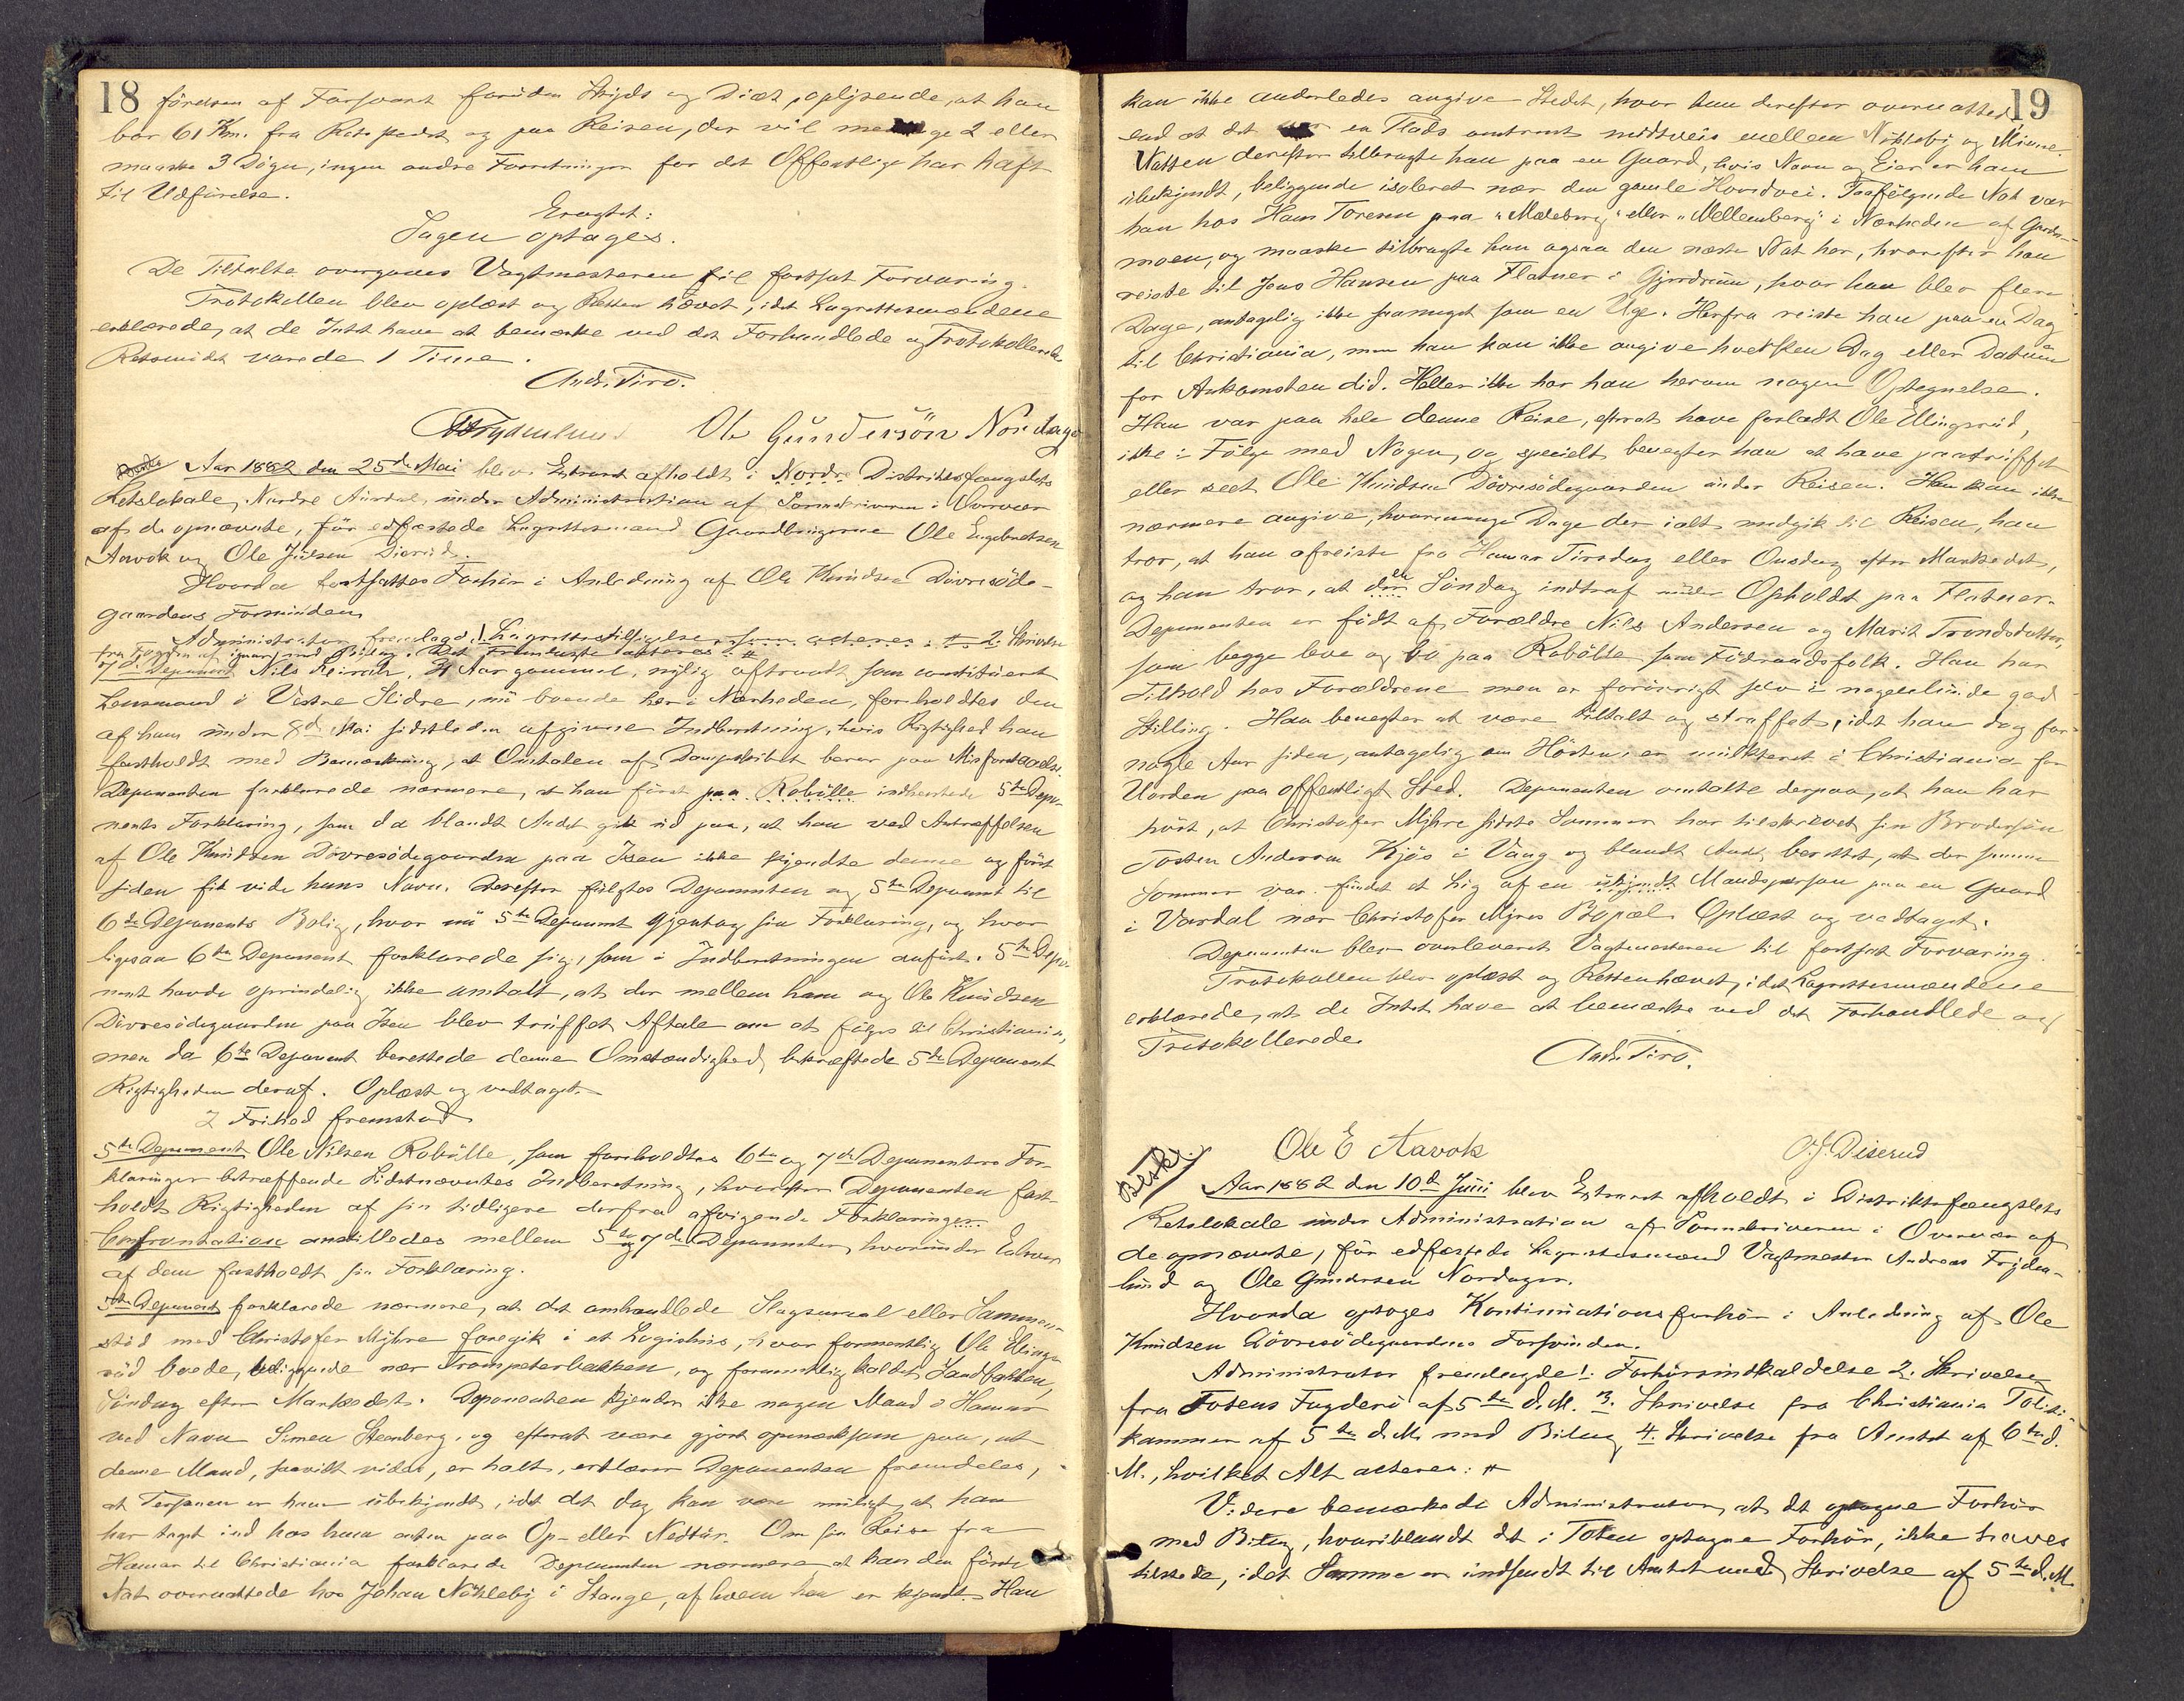 18
førelsen af Forsvaret foruden Skyds og Diæt, oplysende, at han
bor 61 Km. fra Retsstedet og paa Reisen, der vil medtage 2 eller
maaske 3 Døgn, ingen andre Forretninger for det Offentlige har haft
til Udførelse.
Eragtet:
Sagen optages.
De Tiltalte overgaves Vagtmesteren til fortsat Forvaring.
Protokollen blev oplæst og Retten hævet, idet Lagrettesmændene
erklærede, at de Intet have at bemærke ved det Forhandlede og Protokollerede
Retsmødet varede 1 Time.
Andr. Tiro.
A Frydenlund Ole Gundersön Nordager
Aar 1882 den 25de Mai blev Extraret afholdt i Nordre Distriktsfængslets
Retslokale, Nordre Aurdal, under Administration af Sorenskriveren i Overvær
af de opnævnte, før edfæstede Lagrettesmænd Gaardbrugerne Ole Engebretsen
Aavok og Ole Julsen Diserud.
Hvorda fortsattes Forhør i Anledning af Ole Knudsen Dövresöde-
gaardens Forsvinden
Administrator fremlagde 1. Lagrettestilsigelse som acteres: # 2. Skrivelse
fra Fogden af igaar med Bilag. Det Fremlagte acteres #
7de Deponent Nils Reirah, 31 Aar gammel, nylig aftraadt som constitueret
Lensmand i Vestre Slidre, nu boende her i Nærheden, forholdtes den
af ham under 8de Mai sidstleden afgivne Indberetning, hvis Rigtighed han
fastholdt med Bemærkning, at Omtalen af Dampskibet beror paa Misforstaaelse.
Deponenten forklarede nærmere, at han først paa Robölle indhentede 5te Depo-
nents Forklaring, som da blandt Andet gik ud paa, at han ved Antræffelsen
af Ole Knudsen Dövresödegaarden paa Isen ikke kjendte denne og først
siden fik vide hans Navn. Derefter fulgtes Deponenten og 5te Deponent til
6te Deponents Bolig, hvor nu 5te Deponent gjentog sin Forklaring, og hvor
ligesaa 6te Deponent forklarede sig, som i Indberetningen anført. 5te Depo-
nent havde oprindelig ikke omtalt, at der mellem ham og Ole Knudsen
Dövresödegaarden paa Isen blev truffet Aftale om at følges til Christiania,
men da 6te Deponent berettede denne Omstændighed, bekræftede 5te Deponent
Rigtigheden deraf. Oplæst og vedtaget.
I Frihed fremstod
5te Deponent Ole Nilsen Robölle, som foreholdtes 6te og 7de Deponenters For-
klaringer betræffende Sidstnævntes Indberetning, hvorefter Deponenten fast-
holdt Rigtigheden af sin tidligere derfra afvigende Forklaringer.
Confrontation anstilledes mellem 5te og 7de Deponenter, hvorunder Enhver
af dem fastholdt sin Forklaring.
5te Deponent forklarede nærmere, at det omhandlede Slagsmaal eller Sammen-
stød med Christofer Myhre foregik i et Logishus, hvor formentlig Ole Elings-
rud boede, beliggende nær Trompeterbakken, og formentlig kaldet Sandbakken,
Söndag efter Markedet. Deponenten kjender ikke nogen Mand i Hamar
ved Navn Simen Stenberg, og efterat være gjort opmærksom paa, at
denne Mand, saavidt vides, er halt, erklærer Deponenten fremdeles,
at Personen er ham ubekjendt, idet det dog kan være muligt, at han
har taget ind hos ham enten paa Op- eller Nedtur. Om sin Reise fra
Hamar til Christiania forklarede Deponenten nærmere, at han den første
Nat overnattede hos Johan Nökleby i Stange, af hvem han er kjendt. Han
19
kan ikke anderledes angive Stedet, hvor han derefter overnattede
end at det var en Plads omtrent midtveis mellem Nökleby og Minne.
Natten derefter tilbragte han paa en Gaard, hvis Navn og Eier er ham
ubekjendt, beliggende isoleret nær den gamle Hovedvei. Paafølgende Nat var
han hos Hans Toresen paa "Maleberg" eller "Mellemberg" i Nærheden af Garder-
moen, og maaske tilbragte han ogsaa den næste Nat her, hvorefter han
reiste til Jens Hansen paa Flatner i Gjerdrum, hvor han blev flere
Dage, antagelig ikke saameget som en Uge. Herfra reiste han paa en Dag
til Christiania, men han kan ikke angive hvilken Dag eller Datum
for Ankomsten did. Heller ikke har han herom nogen Optegnelse.
Han var paa hele denne Reise, efterat have forladt Ole Ellingsrud,
ikke i Følge med Nogen, og specielt benegter han at have paatruffet
eller seet Ole Knudsen Dövresödegaarden under Reisen. Han kan ikke
nærmere angive, hvormange Dage der ialt medgik til Reisen, han
tror, at han afreiste fra Hamar Tirsdag eller Onsdag efter Markedet,
og han tror, at en Söndag indtraf under Opholdet paa Flatner.
Deponenten er født af Forældre Nils Andersen og Marit Trondsdatter,
som begge leve og bo paa Robölle som Föderaadsfolk. Han har
Tilhold hos Forældrene men er forøvrigt selv i nogenlunde god
Stilling. Han benegter at være tiltalt og straffet, idet han dog for
nogle Aar siden, antagelig om Høsten, er mulkteret i Christiania for
Uorden paa offentligt Sted. Deponenten omtalte derpaa, at han har
hört, at Christofer Myhre sidste Sommer har tilskrevet sin Brodersøn
Tosten Andersen Kjös i Vang og blandt Andet berettet, at der samme
Sommer var fundet et Lig af en ukjendt Mandsperson paa en Gaard
i Vardal nær Christofer Myres Bopæl. Oplæst og vedtaget.
Deponenten blev overleveret Vagtmesteren til fortsat Forvaring.
Protokollen blev oplæst og Retten hævet, idet Lagrettesmændene
erklærede, at de Intet have at bemærke ved det Forhandlede og
Protokollerede.
Andr. Tiro.
Ole E Aavok O. J. Diserud
Beskr.
Aar 1882 den 10de Juni blev Extraret afholdt i Distriktsfængslets
Retslokale under Administration af Sorenskriveren i Overvær af
de opnævnte, før edfæstede Lagrettesmænd Vagtmester Andreas Fryden-
lund og Ole Gundersen Nordager.
Hvorda optoges Kontinuationsforhør i Anledning af Ole
Knudsen Dövresödegaardens Forsvinden.
Administrator fremlagde 1. Forhørsindkaldelse 2. Skrivelse
fra Totens Fogderi af 5te d. M. 3. Skrivelse fra Christiania Politi-
kammer af 5te d. M. med Bilag 4. Skrivelse fra Amtet af 6te d.
M., hvilket Alt acteres: #
Videre bemærkede Administrator, at det optagne Forhør
med Bilag, hvoriblandt det i Toten optagne Forhør, ikke haves
tilstede, idet Samme er indsendt til Amtet med Skrivelse af 5te d. M.